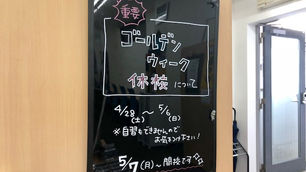 重要
ゴールデン
ウィーク
休校について
4/28(土)～5/6(日)
※自習もできませんので
お気をつけ下さい！
5/7(月)～開校です